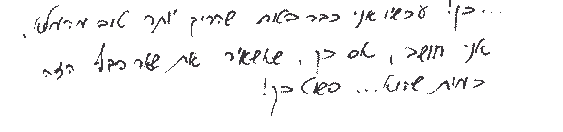 ...כן! עכשיו אני כבר בטוח שהריך יותר טוב מהמלט.
אני חושב, אם כן, שנשאיר את שער הזה
כמות שהוא... פשוט כן!